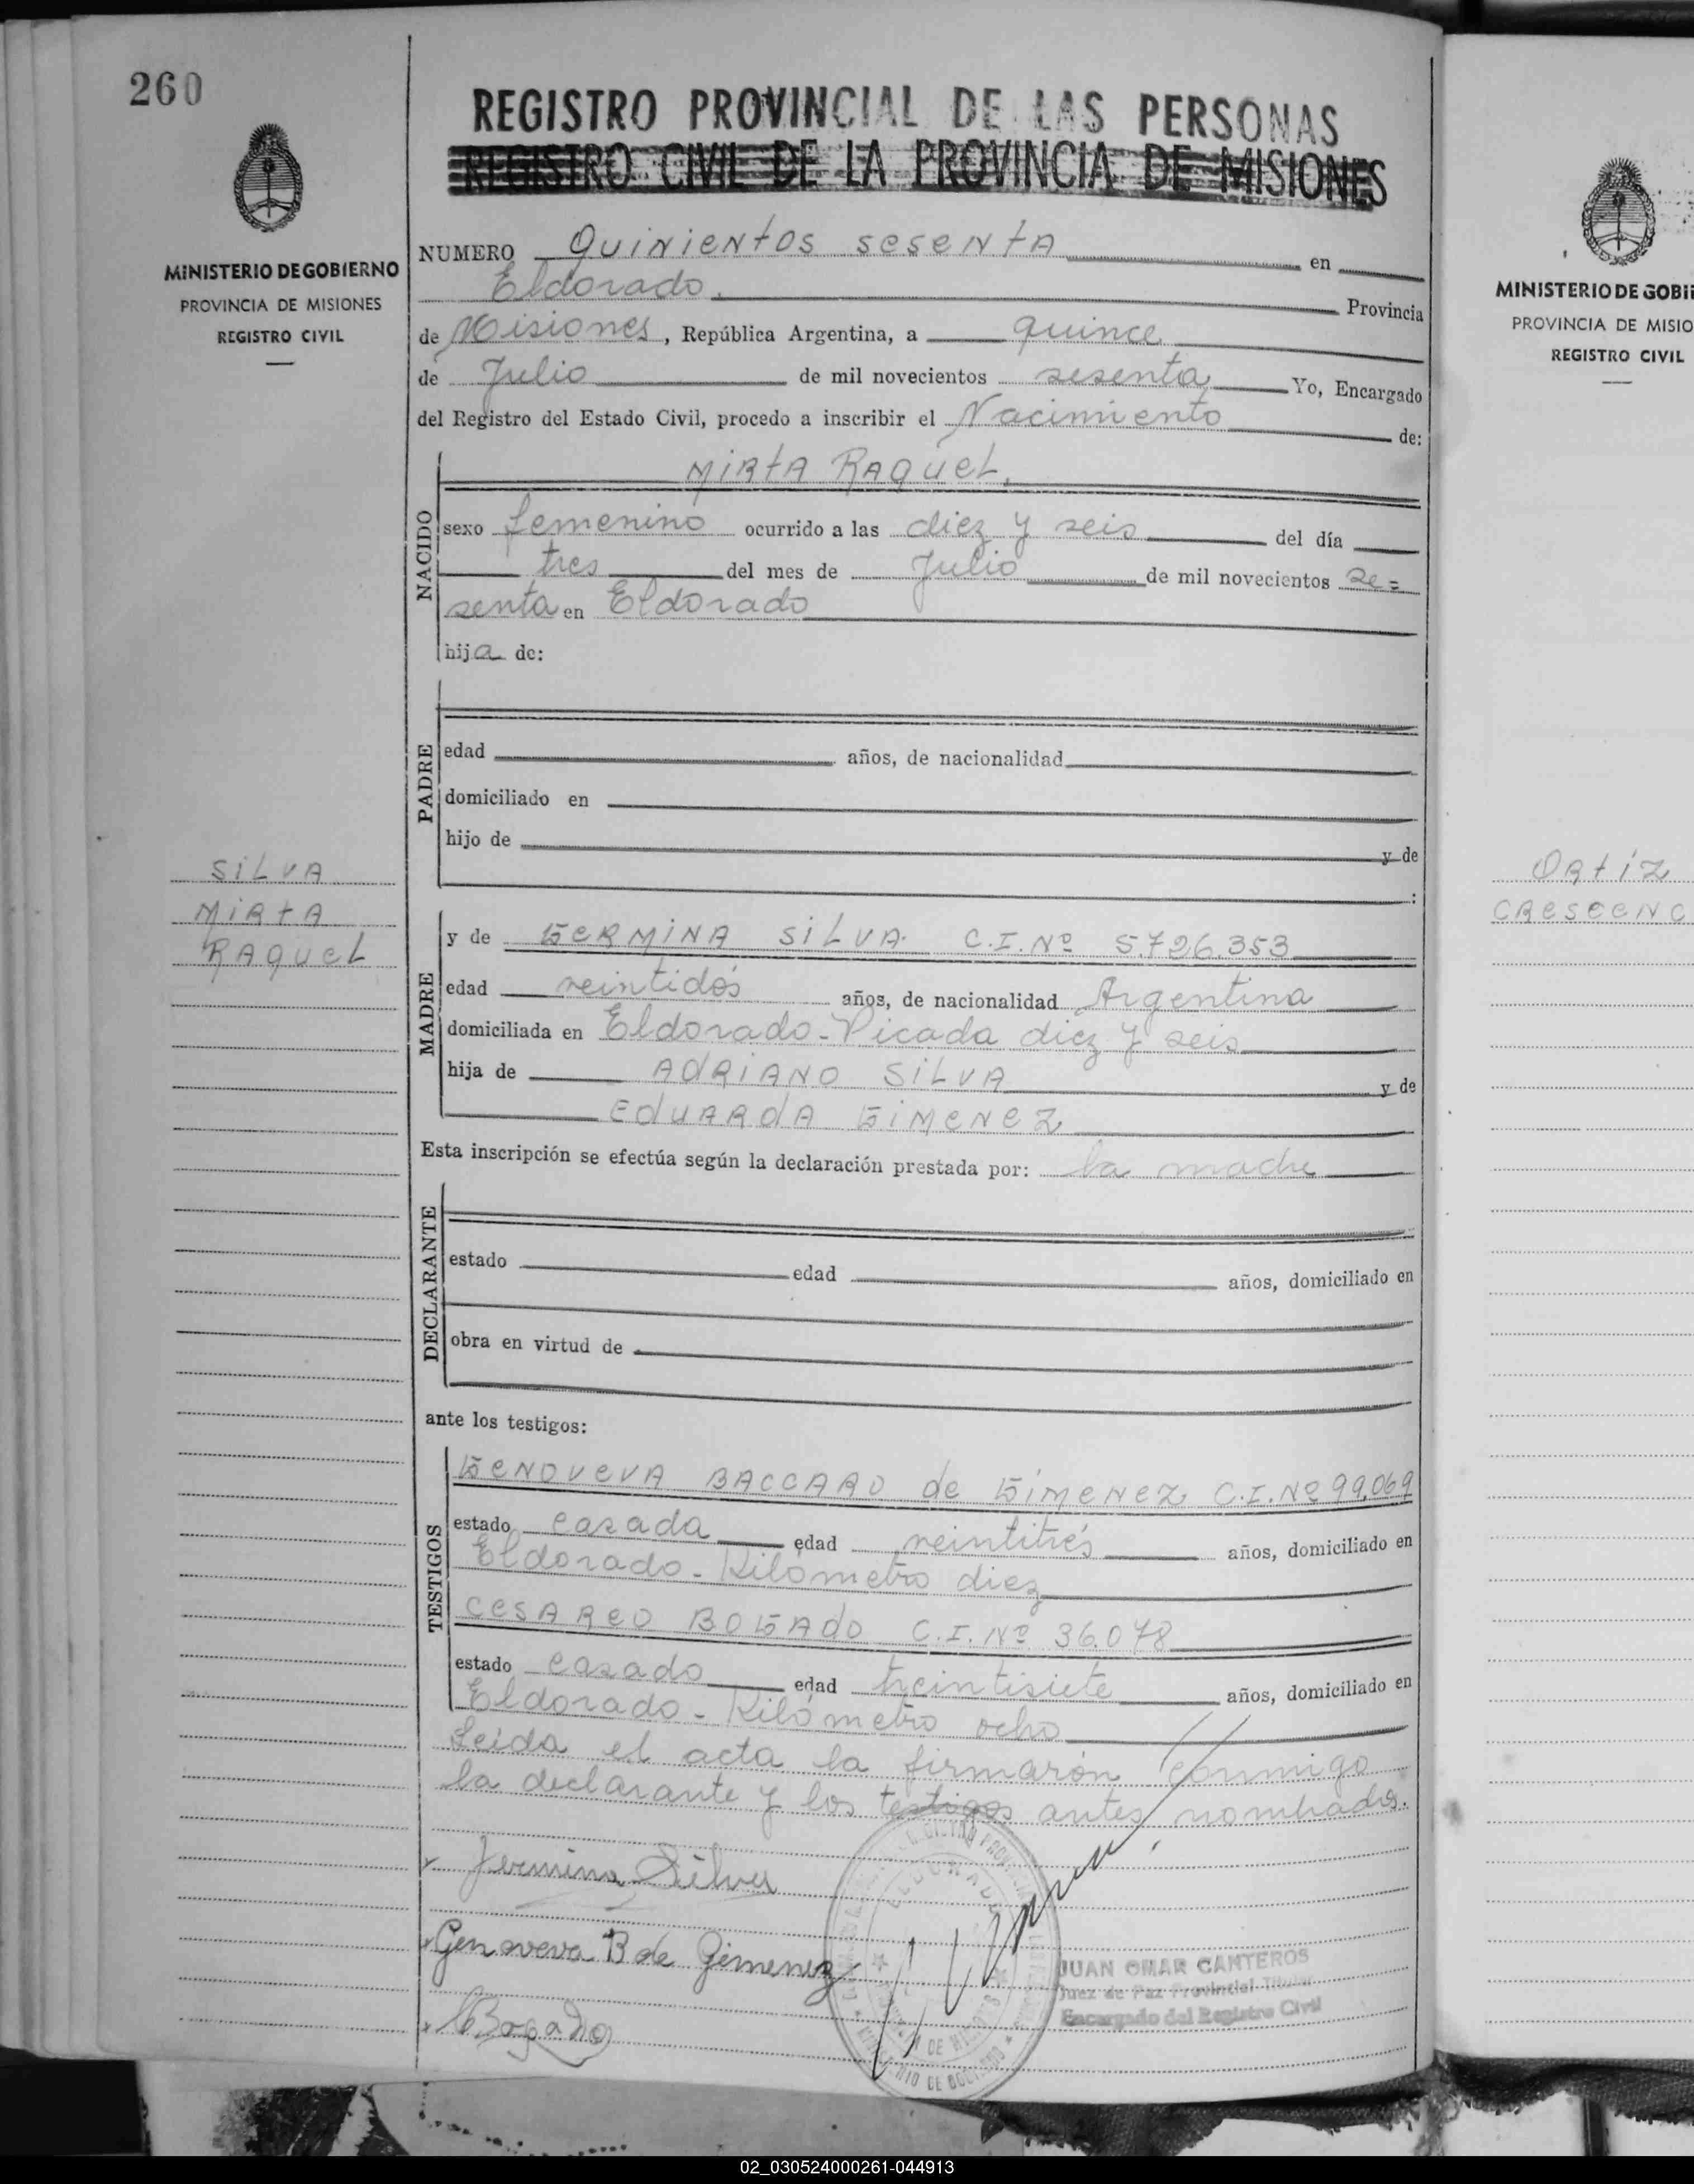 260
REGISTRO PROVINCIAL DE LAS PERSONAS
REGISTRO CIVIL DE LA PROVINCIA DE MISIONES
MINISTERIO DE GOBIERNO
PROVINCIA DE MISIONES
REGISTRO CIVIL
NUMERO Quinientos sesenta en
Eldorado. Provincia
de Misiones, República Argentina, a quince
de Julio de mil novecientos sesenta Yo, Encargado
del Registro del Estado Civil, procedo a inscribir el Nacimiento de:
NACIDO
MIRTA RAQUEL.
sexo femenino ocurrido a las diez y seis del día
tres del mes de Julio de mil novecientos se=
senta en Eldorado
hija de:
PADRE
edad años, de nacionalidad
domiciliado en
hijo de y de
:
SILVA
MIRTA
RAQUEL
MADRE
y de GERMINA SILVA. C.I.Nº 5.726.353
edad veintidós años, de nacionalidad Argentina
domiciliada en Eldorado-Picada diez y seis
hija de ADRIANO SILVA y de
EDUARDA GIMENEZ
Esta inscripción se efectúa según la declaración prestada por: la madre
DECLARANTE
estado edad años, domiciliado en
obra en virtud de
ante los testigos:
TESTIGOS
GENOVEVA BACCARO de GIMENEZ C.I.Nº 99.069
estado casada edad veintitrés años, domiciliado en
Eldorado-Kilómetro diez
CESAREO BOGADO C.I.Nº 36.078
estado casado edad treintisiete años, domiciliado en
Eldorado-Kilómetro ocho
Leída el acta la firmarón conmigo
la declarante y los testigos antes nombrados.
Jermina Silva
Genoveva B de Gimenez
CBogado
ELDORADO
JUAN OMAR CANTEROS
Juez de Paz Provincial Titular
Encargado del Registro Civil
MINISTERIO DE GOBI
PROVINCIA DE MISIO
REGISTRO CIVIL
ORTIZ
CRESCENC
02_030524000261-044913